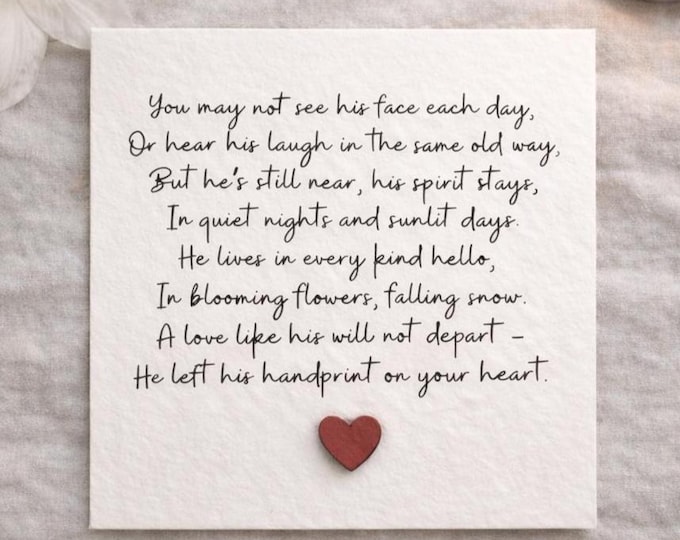 You may not see his face each day,
Or hear his laugh in the same old way,
But he's still near, his spirit stays,
In quiet nights and sunlit days.
He lives in every kind hello,
In blooming flowers, falling snow.
A love like his will not depart –
He left his handprint on your heart.